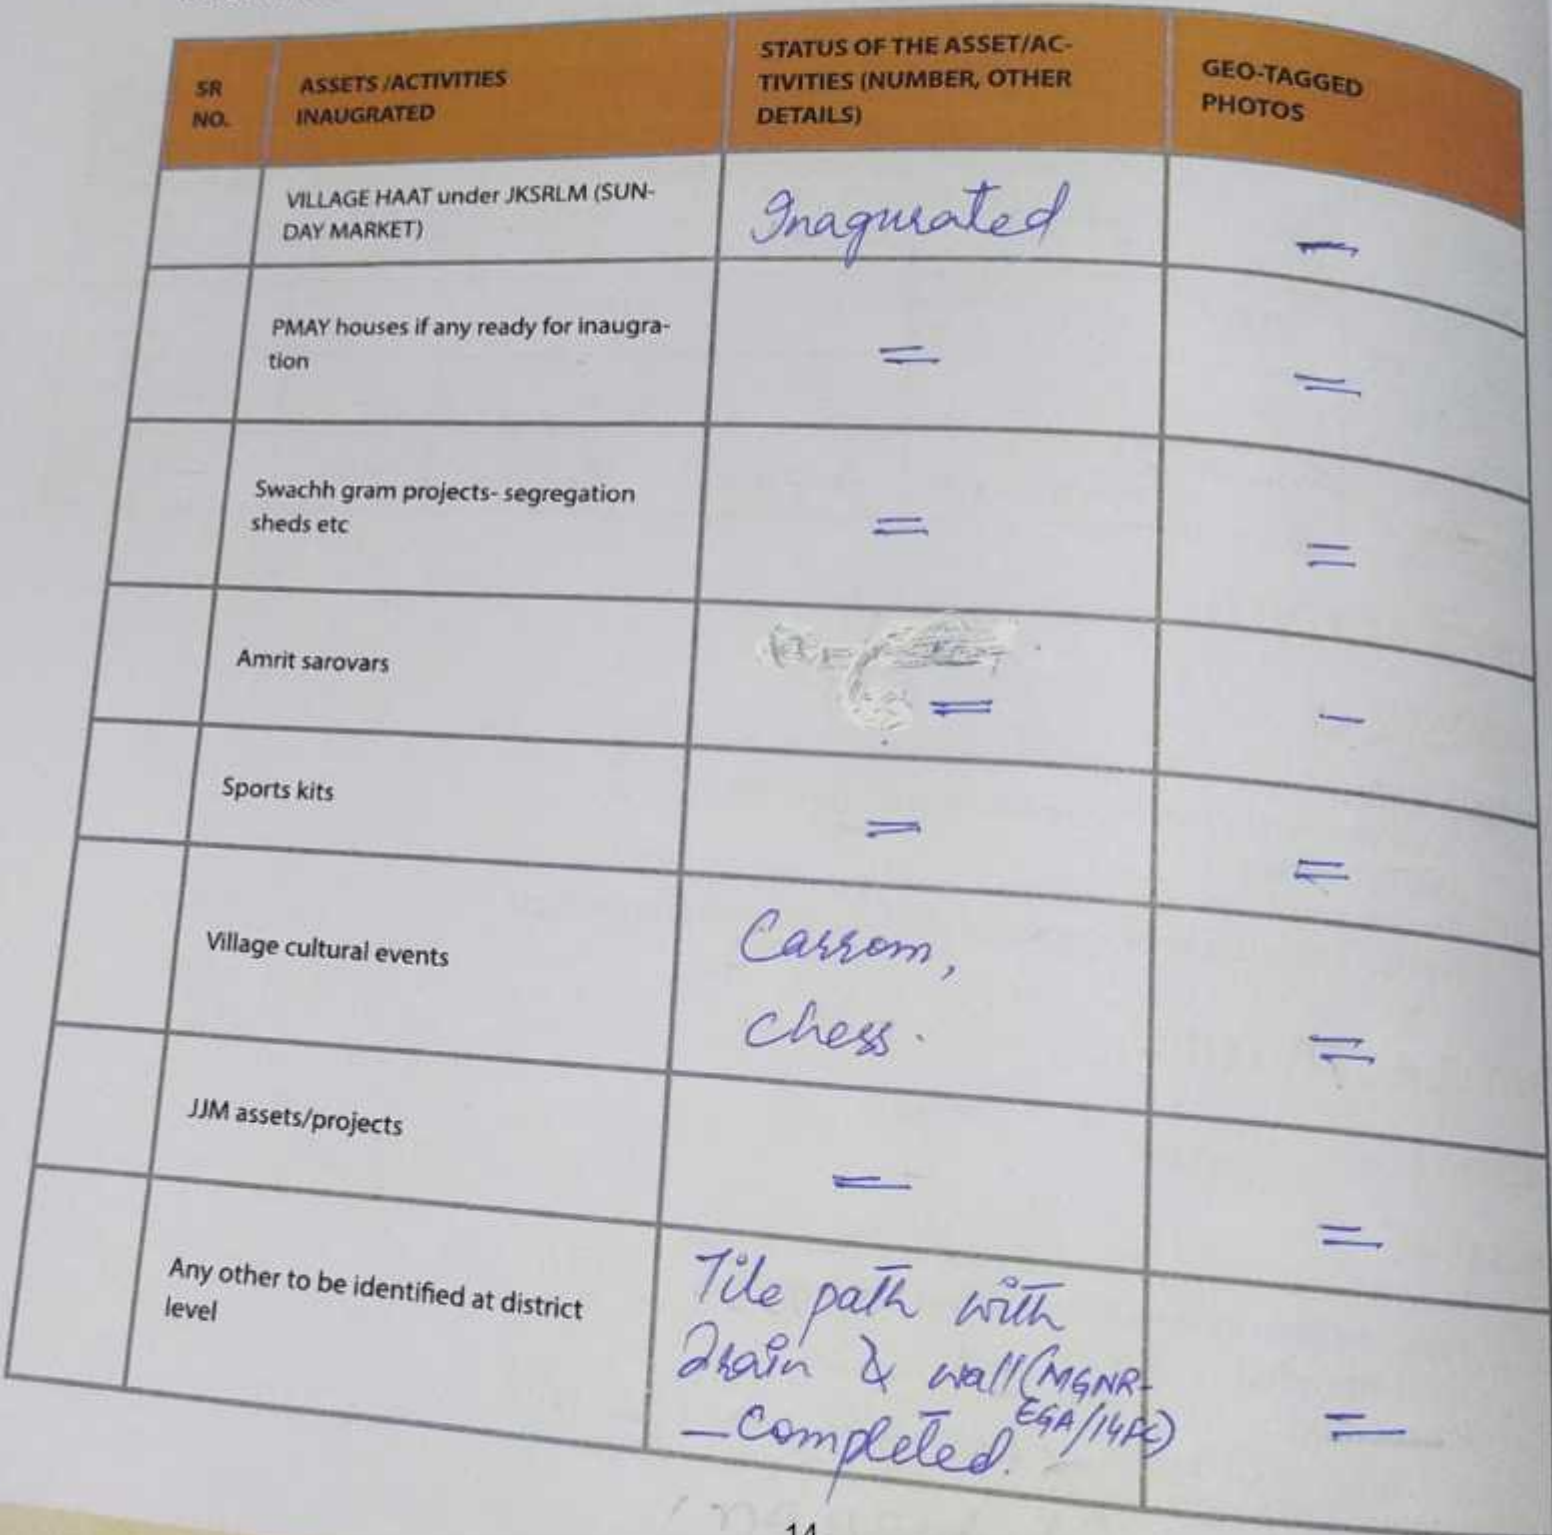 SR
NO.
ASSETS /ACTIVITIES
INAUGRATED
STATUS OF THE ASSET/AC-
TIVITIES (NUMBER, OTHER
DETAILS)
GEO-TAGGED
PHOTOS
VILLAGE HAAT under JKSRLM (SUN-
DAY MARKET)
Inagurated
—
PMAY houses if any ready for inaugra-
tion
=
=
Swachh gram projects- segregation
sheds etc
=
=
Amrit sarovars
=
—
Sports kits
=
=
Village cultural events
Carrom,
chess.
=
JJM assets/projects
=
=
Any other to be identified at district
level
Tile path with
Drain & wall (MGNR-
EGA/14FC)
—completed.
=
14